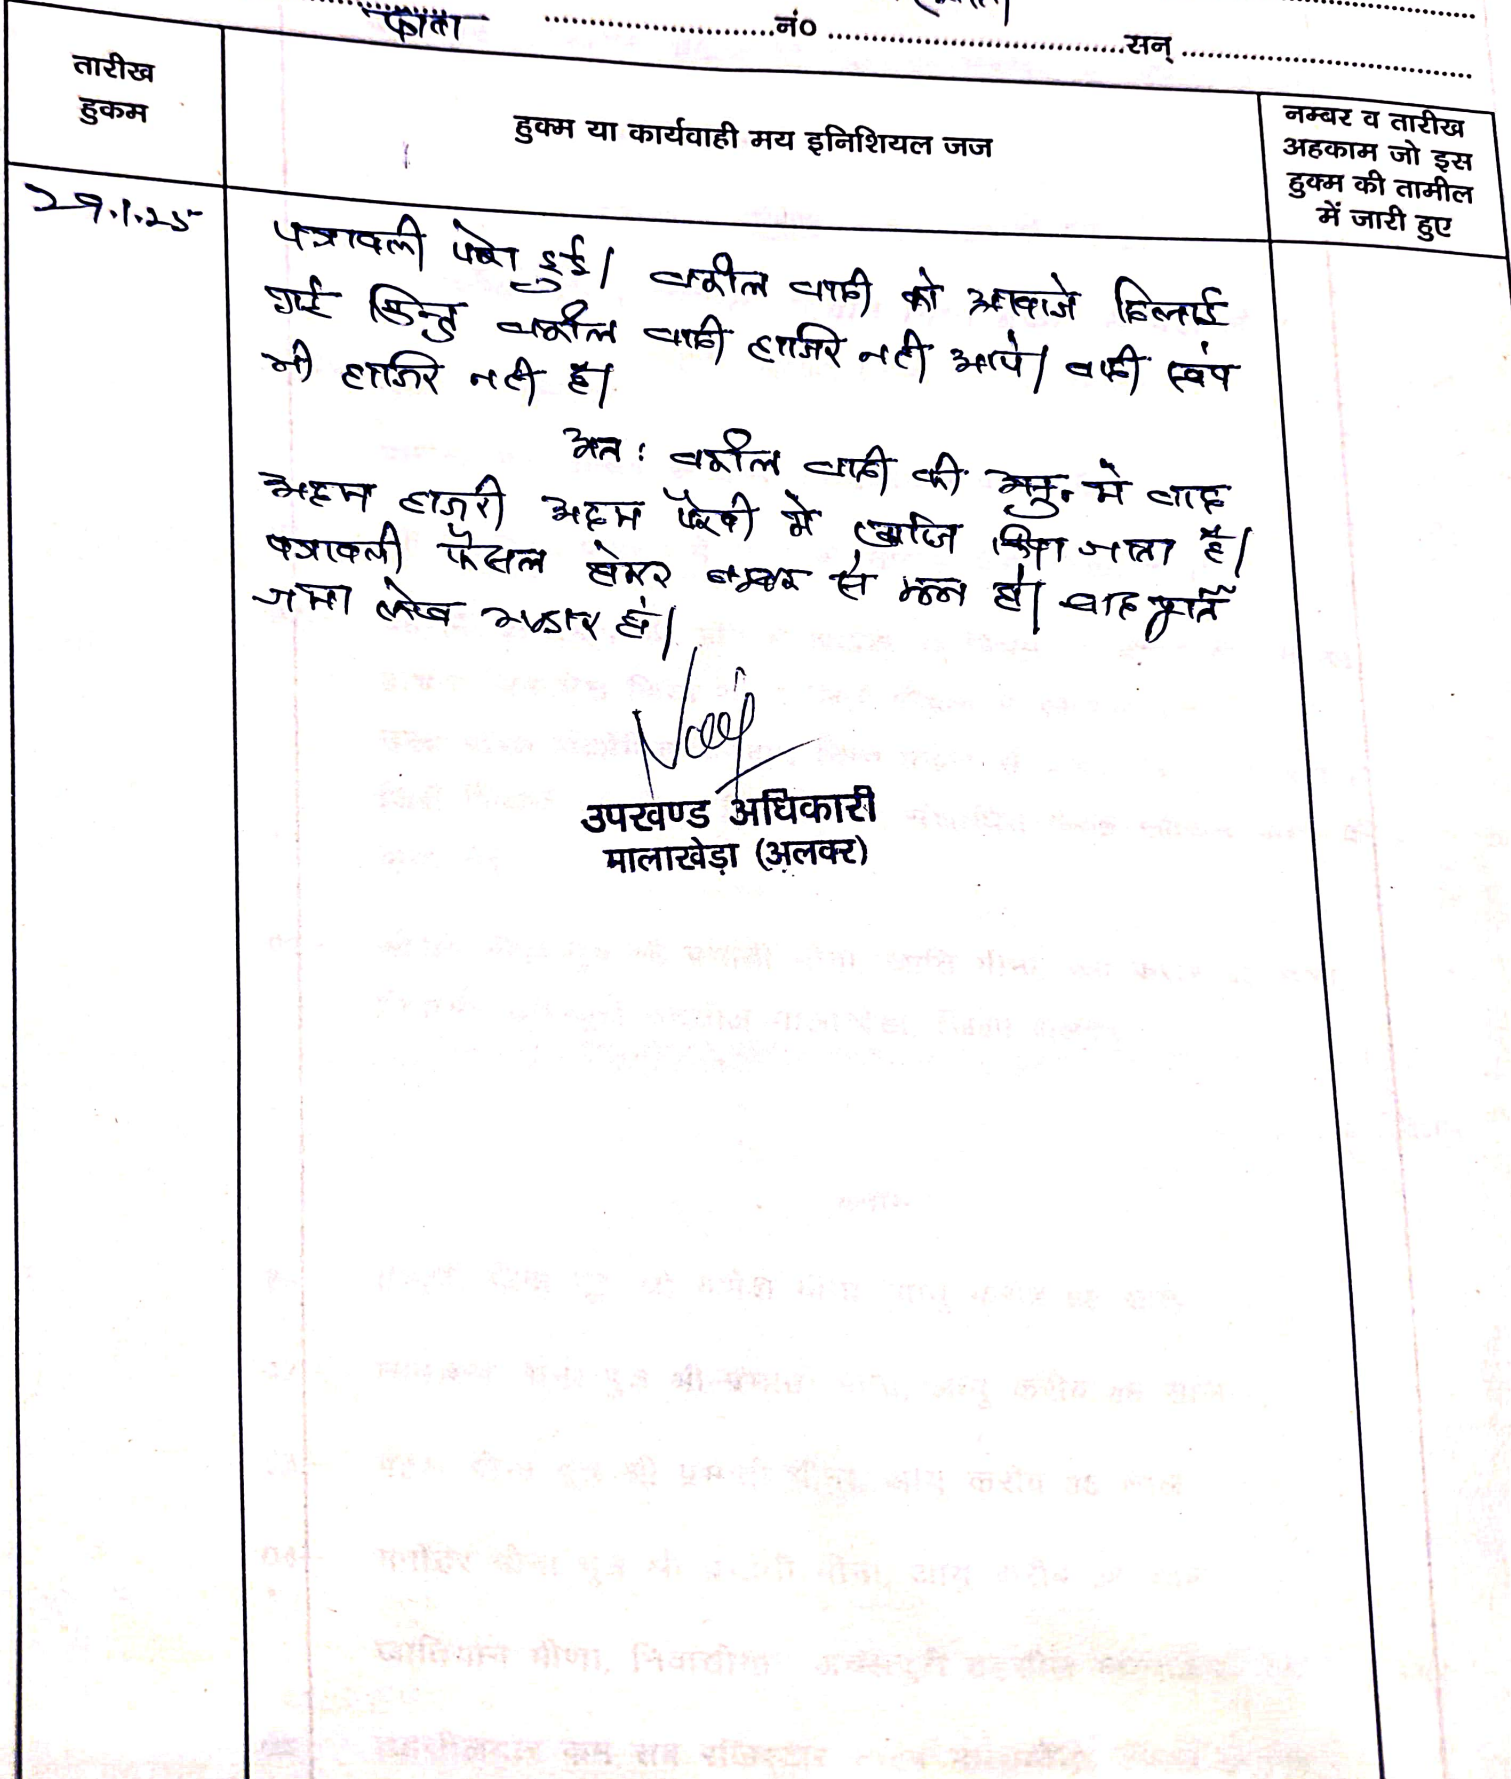 फौता ........................नं० ................................सन् ................................
तारीख
हुकम
हुक्म या कार्यवाही मय इनिशियल जज
नम्बर व तारीख
अहकाम जो इस
हुक्म की तामील
में जारी हुए
29.1.25
पत्रावली पेश हुई। वकील वादी को आवाजे दिलाई
गई किन्तु वकील वादी हाजिर नही आये। वादी स्वंय
भी हाजिर नही है।
अत: वकील वादी की अनु. मे वाद
अदम हाजरी अदम पैरवी मे खारिज किया जाता है।
पत्रावली फैसल होकर नम्बर से कम हो। बाद पूर्ति
जमा लेख भण्डार हो।
उपखण्ड अधिकारी
मालाखेड़ा (अलवर)